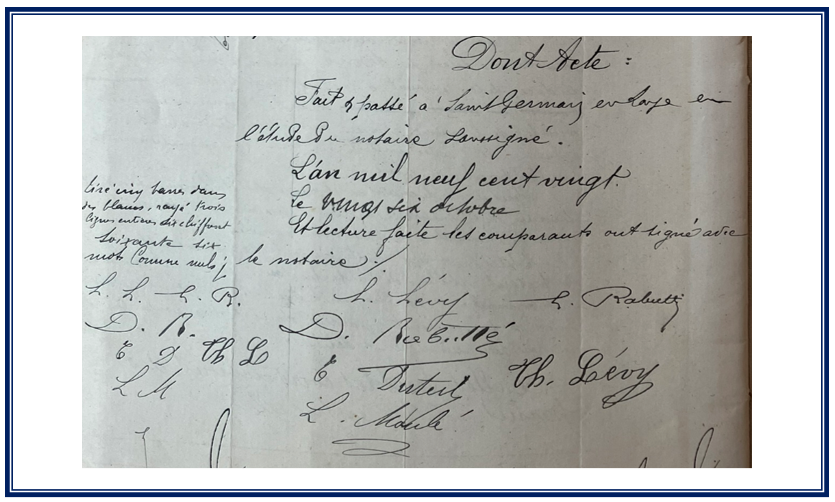 Dont Acte :
Fait & passé à Saint Germain en Laye en
l'étude du notaire soussigné.
L'an mil neuf cent vingt.
Le vingt six octobre
Et lecture faite les comparants ont signé avec
le notaire ./.
tiré cinq barres dans
des blancs, rayé trois
lignes entières dix chiffres
soixante six
mots comme nuls ;
L. L. L. R.
D. R.
E D Th L
L M
L. Lévy L. Rabutté
D. Rabutté
E Th. Lévy
L.